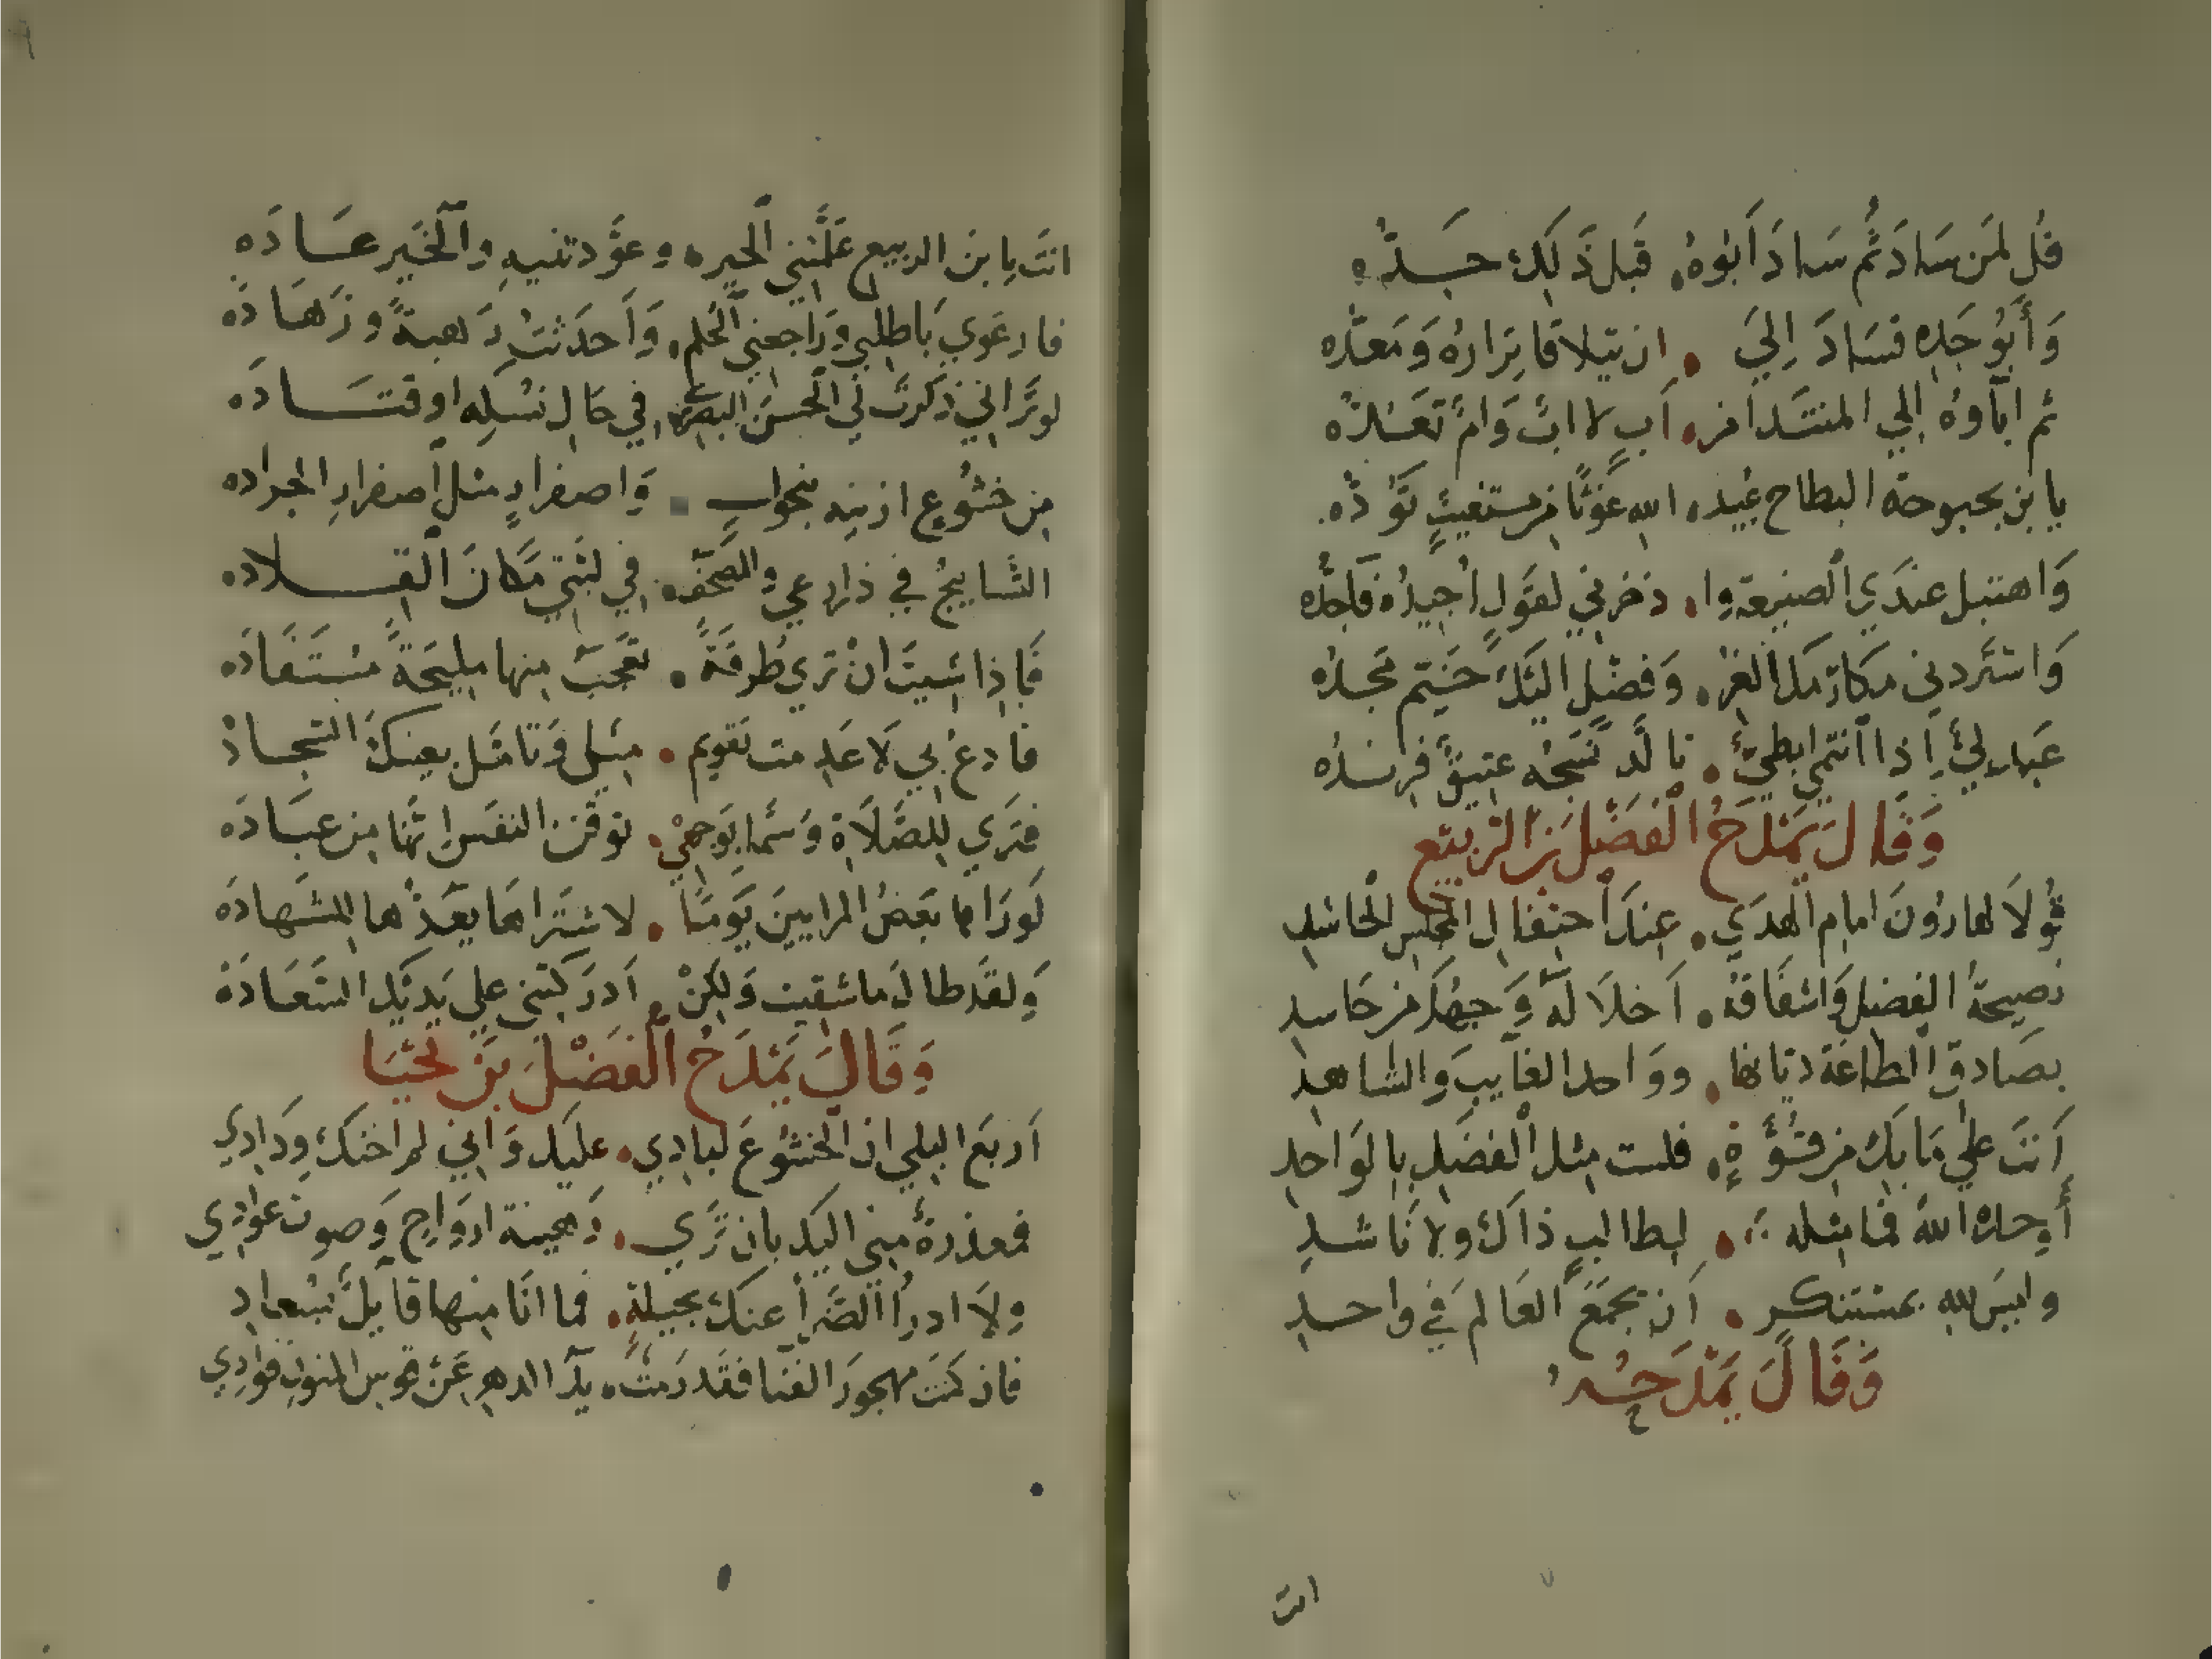 قُل لمَن سَادَ ثُم سَادَ اَبُوهُ قَبلَ ذَلِكَ جَــدُّه
وَأَبُو جَدِه فسَادَ اِلَيَ ان يتلاقا نزاره وَمَعَدّه
ثم اباوه الي المنتدا من اَبٍ لا ابٌ وَامٌ تعَــدُّه
يا بن بحبوحة البطاح عبيد الله غَوثًا من مستغيثٍ تَوَدُّه
وَاهتبل عندَي الصنيعة وا ذخرني لقَولٍ اُجيدُه فاجدُّه
وَاستزدني مَكارمكَ الغر وَفضلٍ اليَكَ خَتم مجدُه
عَبدريٌ اِذا انتمي ابطحيٌ تالدٌ نسجُه عتيقٌ فرندُه
وَقَالَ يَمْدَحُ الْفَضْلَ بنَ الرَّبِيع
قُولَا لهارُونَ امام الهدَي عِندَ احتفال المجلس الحاشدِ
نصيحةُ الفضلِ وَاشفَاقُه اَخلَا لَهُ وَجهكَ من حَاسدِ
بصَادقِ الطاعَة ديانها وواحد الغايبِ وَالشاهدِ
اَنتَ علي مَا بكَ من قُدْرَةٍ فلست مثل الفضل بالوَاحدِ
أَوحدهُ اللهُ فَما مثله لطالبٍ ذاكَ ولا نَاشدِ
وليسَ لله بمستنكرٍ اَن يجمَعَ العَالم فِي واحــدِ
وَقَالَ يَمْدَحُـــهُ
انت
انتَ يا بنَ الربيع عَلَّمتني الخير وعوَّدتنيهِ وَالخَير عَــادَه
فارعَوي بَاطلِي وَراجعني الحلم وَاَحدَثتُ رَهبةً وزَهَادَه
لو تَرَاني ذكرتَ لي الحسنَ البصري في حَالِ نسُكِه او قتَــادَه
مِن خشُوعٍ ازنيه بنحولٍ وَاصفرارٍ مثل اصفرارِ الجرادَه
التسَابيحُ في ذراعي والمصحف في لبَّتي مكَانَ القِــلادَه
فَاِذا شيتَ انْ تري طُرفَةً تعجَبُ مِنها مليحَةً مسْتَفَادَه
فادعُ بي لَا عَدِمتَ تقويم مثلي وَتامَّل بِعينكَ السجــادَه
فتَري للِصَّلَاة وَسْمًا بوَجهي توقن النفسُ انّها من عبَــادَه
لَو رَاها بَعضُ المرايينَ يَومًا لاشترَاها يعَدُّها للشَهادَه
وَلقَد طالَ ما شقيتُ وَلكنْ اَدرَكتني علي يَديكَ السَعَــادَه
وَقَالَ يَمْدَحُ الْفَضْلَ بنَ يَحْيَا
اَربعَ البلي ان الخشُوعَ لبادِي عليكَ وَاني لم اخنكَ ودَادِي
فمعذرةً مِني اليكَ بان تَري رَهينة ارَواحٍ وَصوبَ غوَادِي
ولَا ادرأُ الضَّراَ عنكَ بحيلةٍ فما انَا منها قَايلٌ لسُعادِ
فان كنتَ مهجورَ الفنَا فقَد رَمت يدُ الدهرِ عَن قوسِ المنونِ فوَادِي